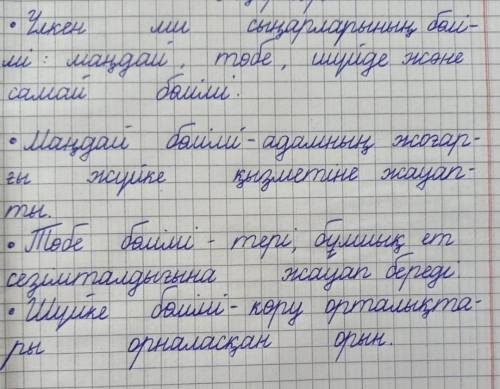 • Үлкен ми сыңарларының бөлі-
мі: маңдай, төбе, шүйде және
самай бөлімі.
• Маңдай бөлімі - адамның жоғар-
ғы жүйке қызметіне жауап-
ты.
• Төбе бөлімі - тері, бұлшық ет
сезімталдығына жауап береді
• Шүйке бөлімі - көру орталықта-
ры орналасқан орын.